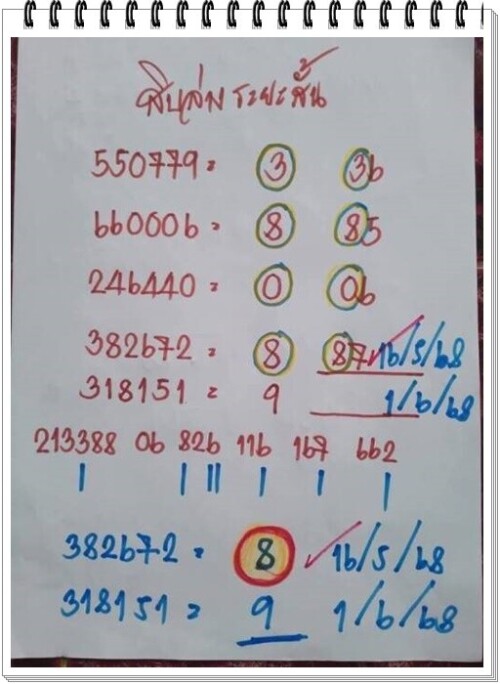 สินล่ม ระยะสั้น
550779 = 3 36
660006 = 8 85
246440 = 0 06
382672 = 8 87 ✓ 16/5/68
318151 = 9 1/6/68
213388 06 826 116 167 662
| | || | | |
382672 = 8 ✓ 16/5/68
318151 = 9 1/6/68